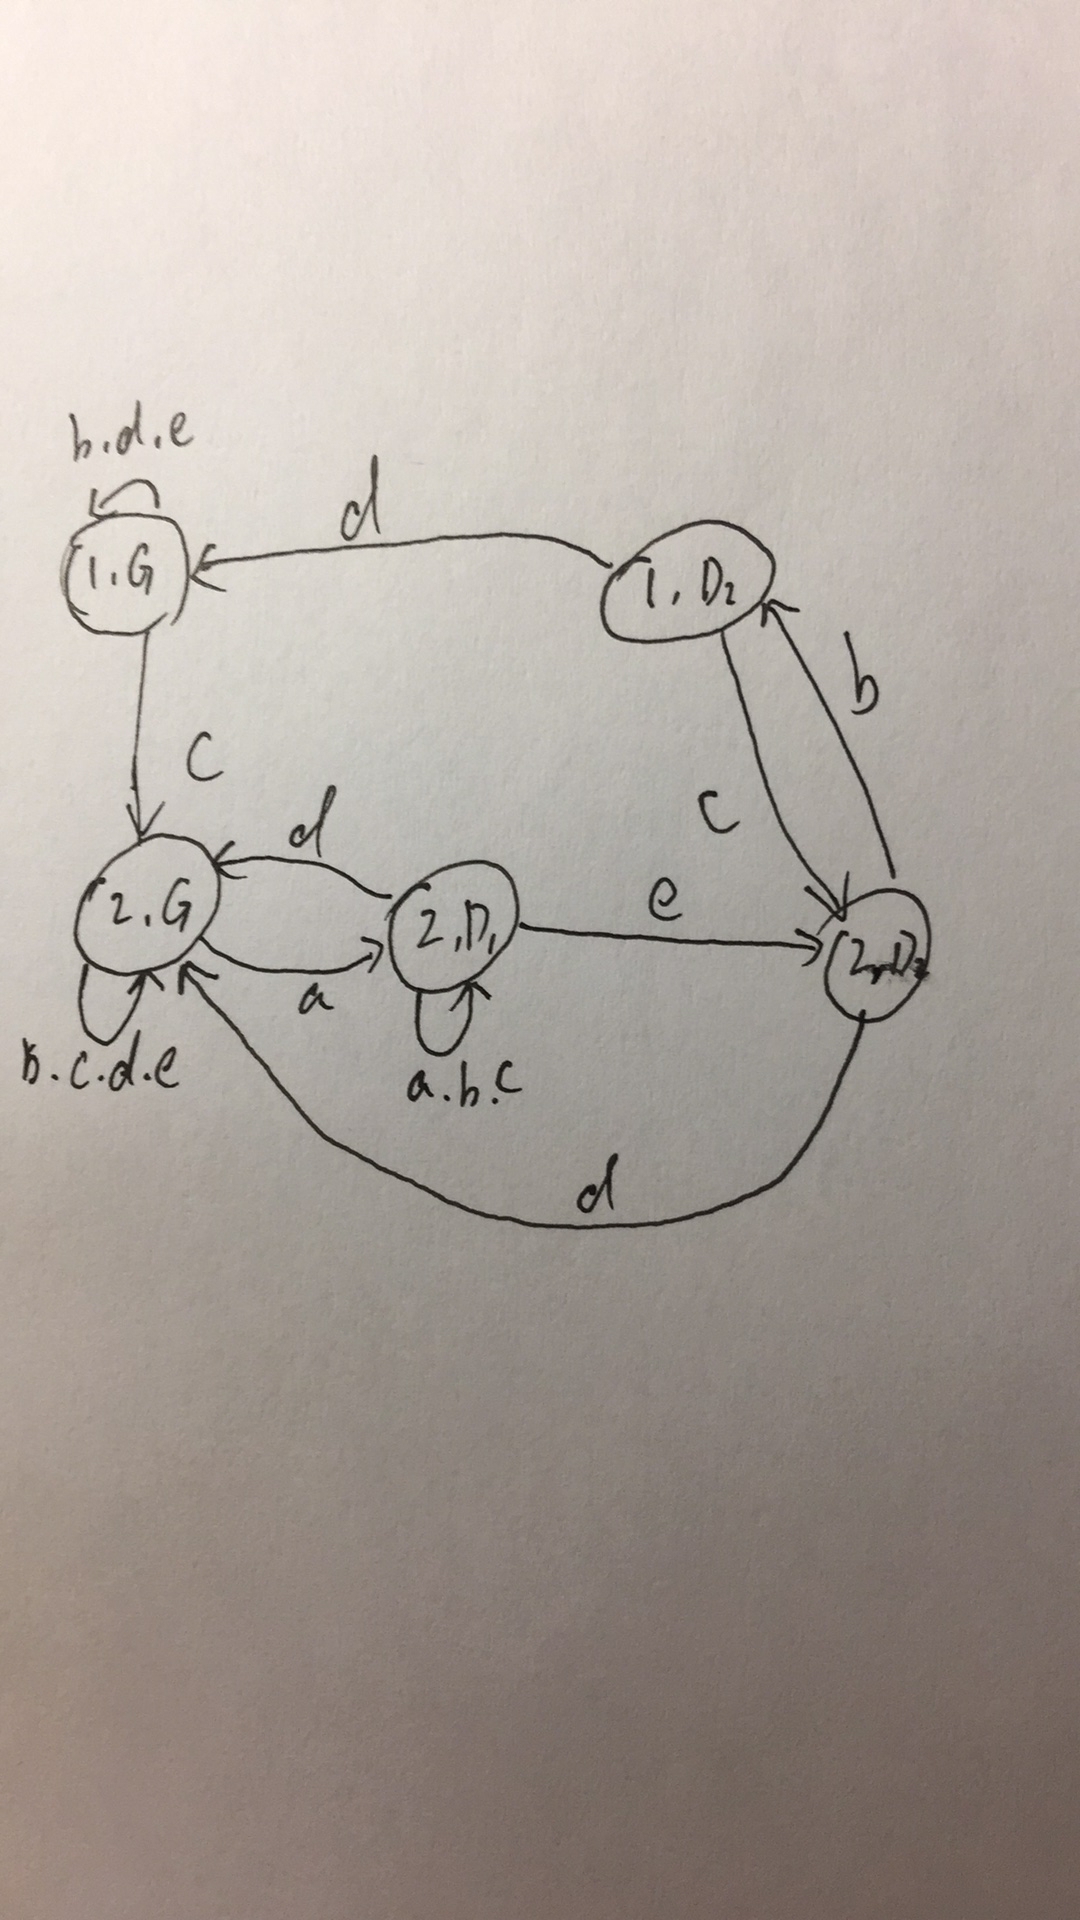 b.d.e
d
1.G
1, D₂
b
C
C
d
e
2.G
2,D₁
(2, D₂
a
b.c.d.e
a.b.c
d